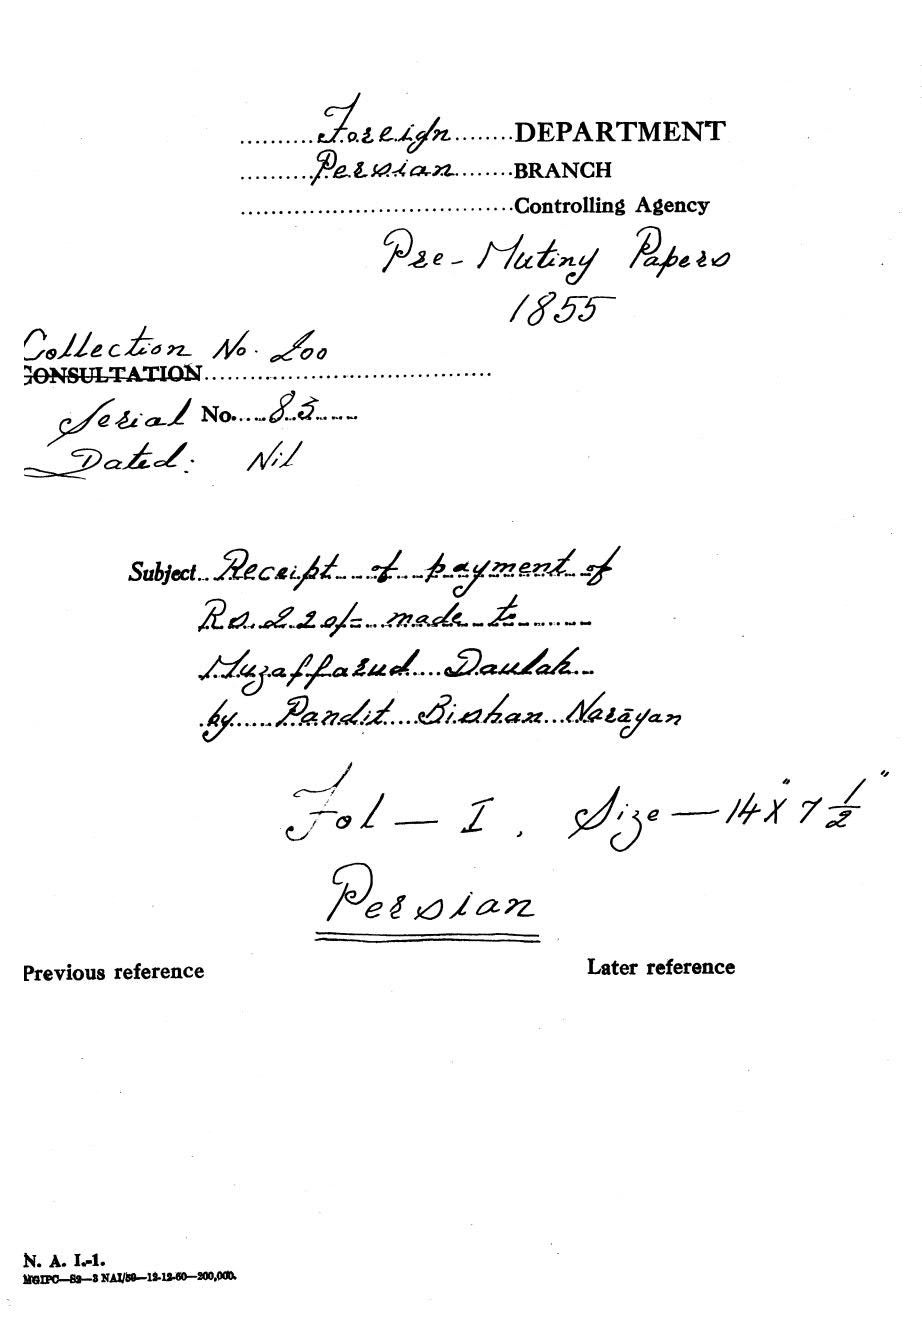 Foreign DEPARTMENT
Persian BRANCH
Controlling Agency
Pre-Mutiny Papers
1855
Collection No. 200
CONSULTATION
Serial No. 83
Dated: Nil
Subject Receipt of payment of
Rs. 220/= made to
Muzaffarud Daulah
by Pandit Bishan Narāyan
Fol — I, Size — 14" X 7 1/2"
Persian
Previous reference
Later reference
N. A. I.-1.
MGIPC—S2—3 NAI/59—12-12-60—200,000.